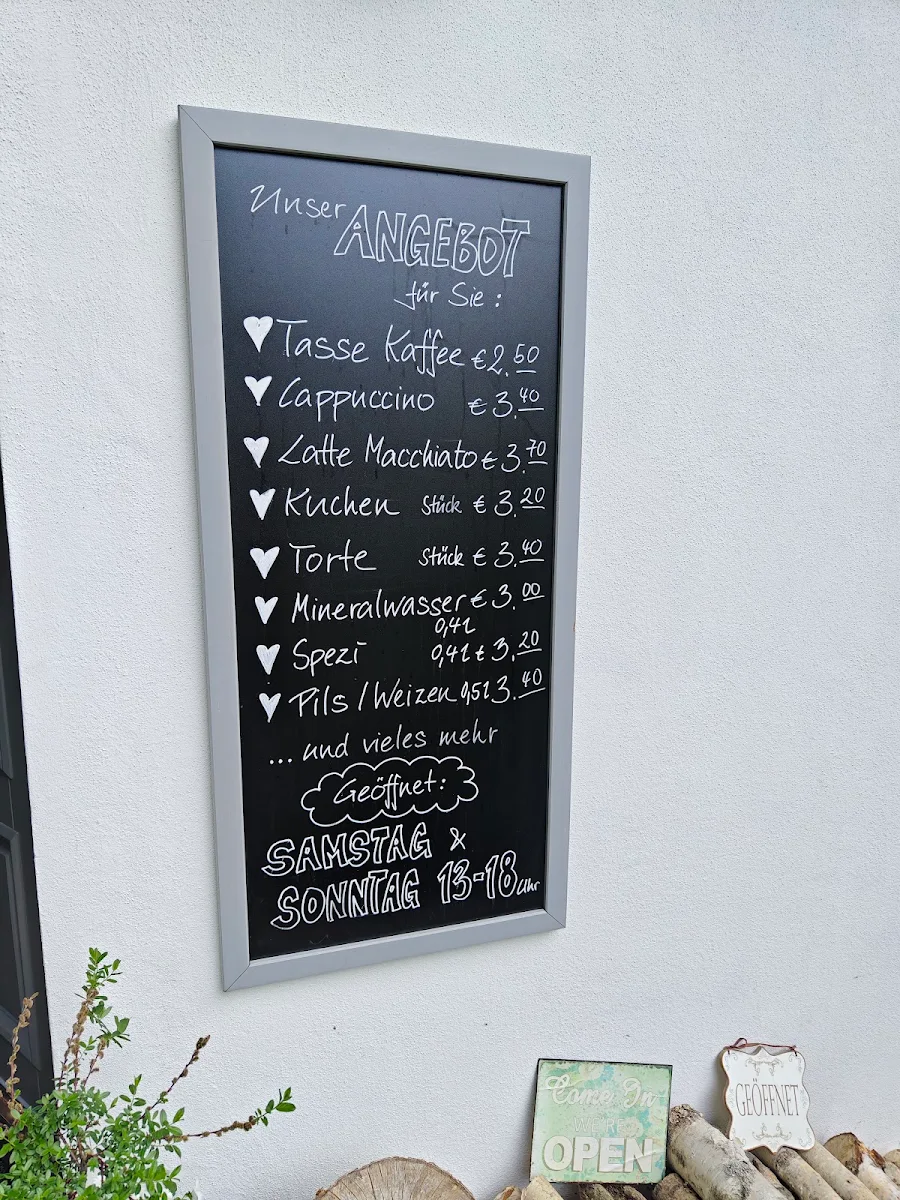 Unser ANGEBOT
für Sie:
Tasse Kaffee € 2.50
Cappuccino € 3.40
Latte Macchiato € 3.70
Kuchen Stück € 3.20
Torte Stück € 3.40
Mineralwasser € 3.00
0,4l
Spezi 0,4l € 3.20
Pils / Weizen 0,5l 3.40
... und vieles mehr
Geöffnet:
SAMSTAG &
SONNTAG 13-18 Uhr
Come In
WE'RE
OPEN
GEÖFFNET